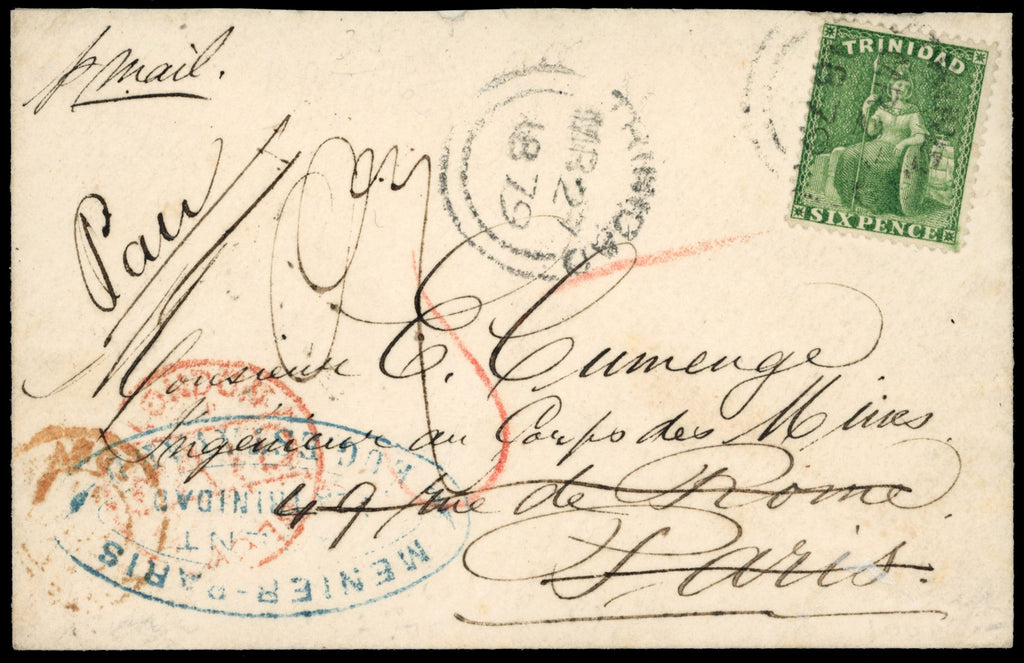 p mail.
TRINIDAD
SIX PENCE
TRINIDAD
MR 27
1879
Pau
Monsieur E. Cumenge
Ingénieur au Corps des Mines
49 rue de Rome
Paris.
LONDON
EUGENE
TRINIDAD
MENIER-PARIS